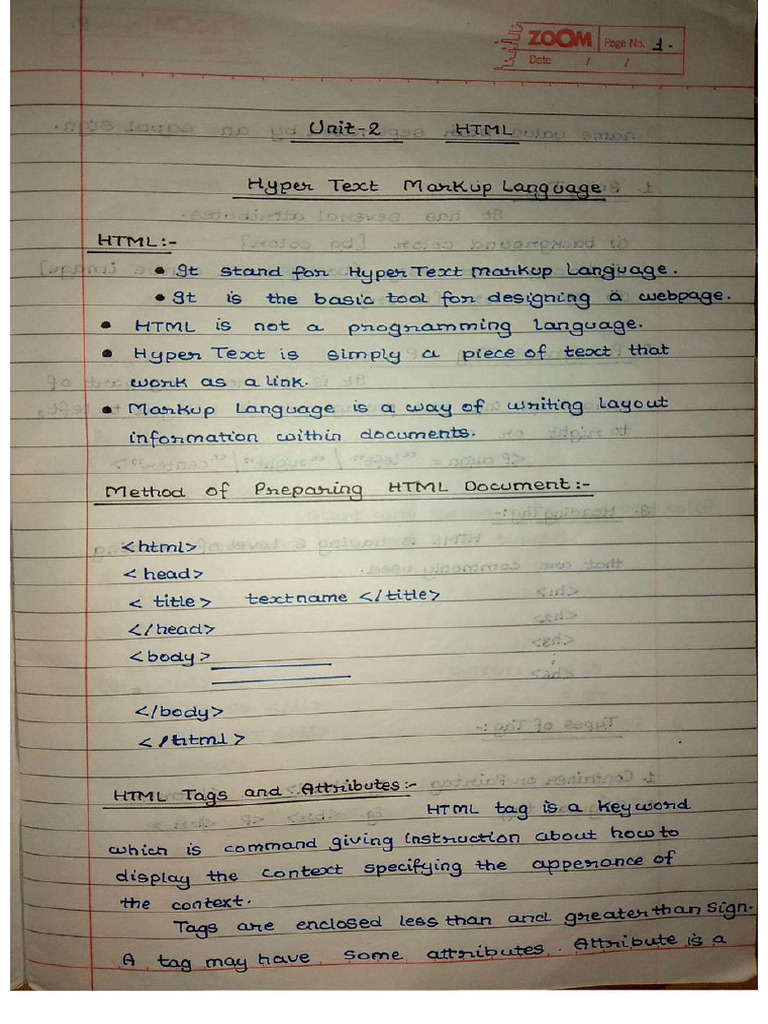 ZOOM Page No. 1.
Date / /
Unit-2 HTML
Hyper Text Markup Language
HTML:-
• It stand for Hyper Text Markup Language.
• It is the basic tool for designing a webpage.
• HTML is not a programming language.
• Hyper Text is simply a piece of text that
work as a link.
• Markup Language is a way of writing layout
information within documents.
Method of Preparing HTML Document:-
<html>
<head>
<title> textname </title>
</head>
<body>
</body>
</html>
HTML Tags and Attributes:-
HTML tag is a keyword
which is command giving instruction about how to
display the context specifying the apperance of
the context.
Tags are enclosed less than and greater than sign.
A tag may have some attributes. Attribute is a